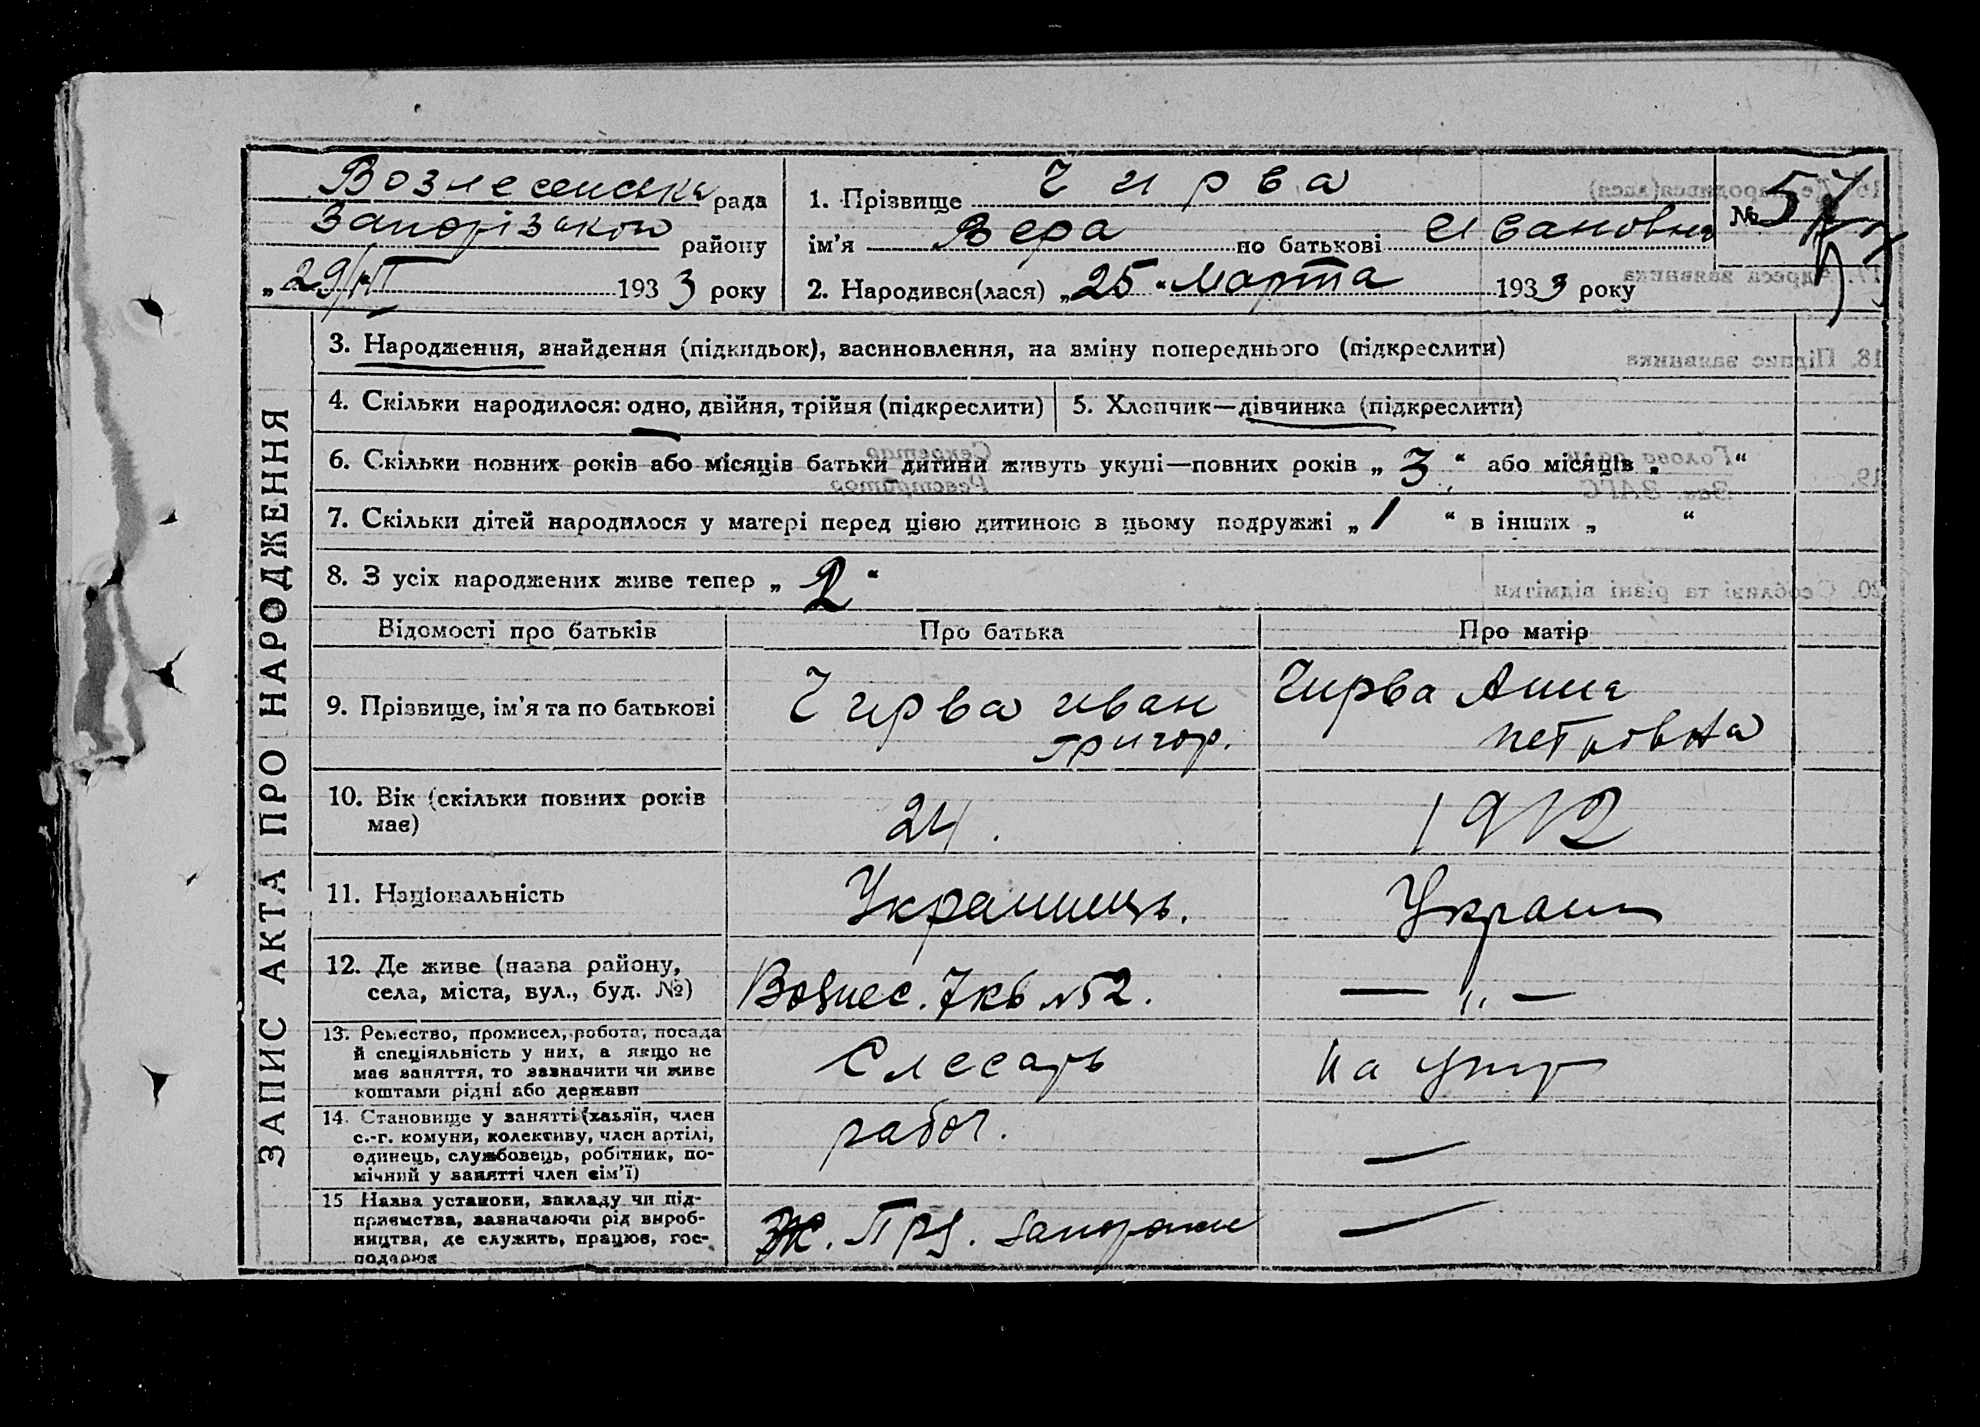 Вознесенська рада
Запорізького району
„29/III 1933 року
1. Прізвище Чирва
ім’я Вера по батькові Ивановна
2. Народився(лася) „25“ Марта 1933 року
№ 57
ЗАПИС АКТА ПРО НАРОДЖЕННЯ
3. Народження, знайдення (підкидьок), засиновлення, на зміну попереднього (підкреслити)
4. Скільки народилося: одно, двійня, трійня (підкреслити)
5. Хлопчик—дівчинка (підкреслити)
6. Скільки повних років або місяців батьки дитини живуть укупі—повних років „3“ або місяців „ “
7. Скільки дітей народилося у матері перед цією дитиною в цьому подружжі „1“ в інших „ “
8. З усіх народжених живе тепер „2“
Відомості про батьків
Про батька
Про матір
9. Прізвище, ім’я та по батькові
Чирва Иван
Григор.
Чирва Анна
Петровна
10. Вік (скільки повних років
має)
24.
1912
11. Національність
Украинець.
Украин
12. Де живе (назва району,
села, міста, вул., буд. №)
Вознес. 7 кв №52.
— „ —
13. Ремество, промисел, робота, посада
й спеціяльність у них, а якщо не
має заняття, то зазначити чи живе
коштами рідні або держави
Слесарь
На
14. Становище у занятті (хазяїн, член
с.-г. комуни, колективу, член артілі,
одинець, службовець, робітник, по-
мічний у занятті член сім’ї)
рабоч.
—
15 Назва установи, закладу чи під-
приємства, зазначаючи рід вироб-
ництва, де служить, працює, гос-
подарює
—